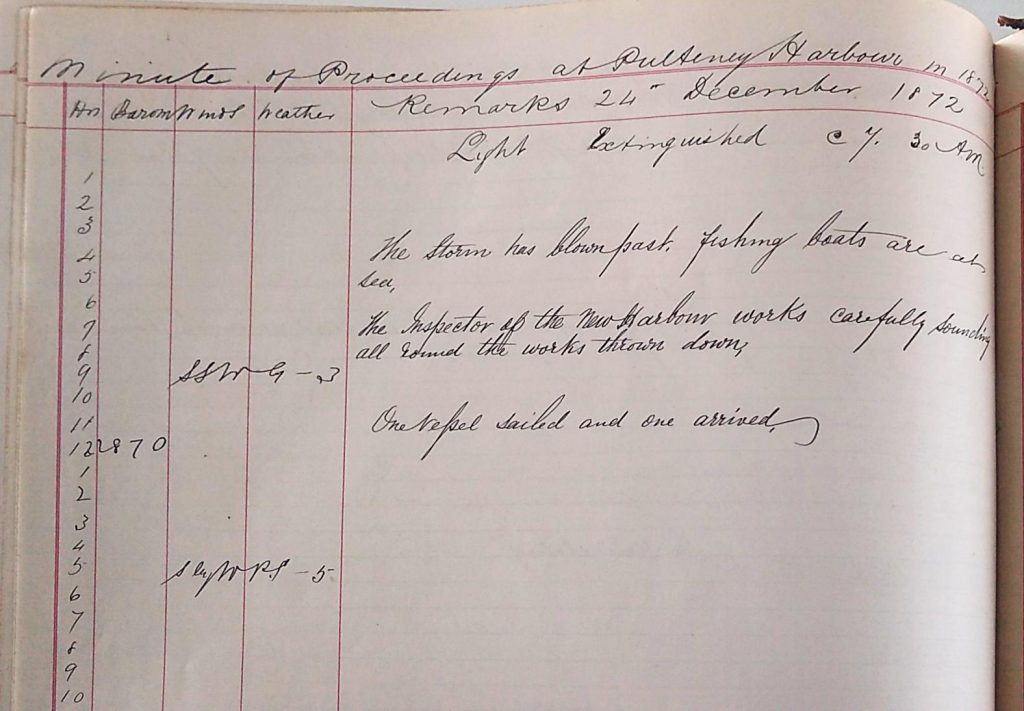 Minute of Proceedings at Pulteney Harbour in 1872
Hrs Barom Winds Weather Remarks 24" December 1872
Light Extinguished @ 7. 30 AM
1
2
3
The Storm has blown past, fishing boats are at
4
sea,
5
6
The Inspector of the New Harbour works carefully sounding
7
all round the works thrown down,
8
9 SSW G - 3
10
11 One Veſsel sailed and one arrived,
12 2870
1
2
3
4
5 S by W P.S - 5
6
7
8
9
10